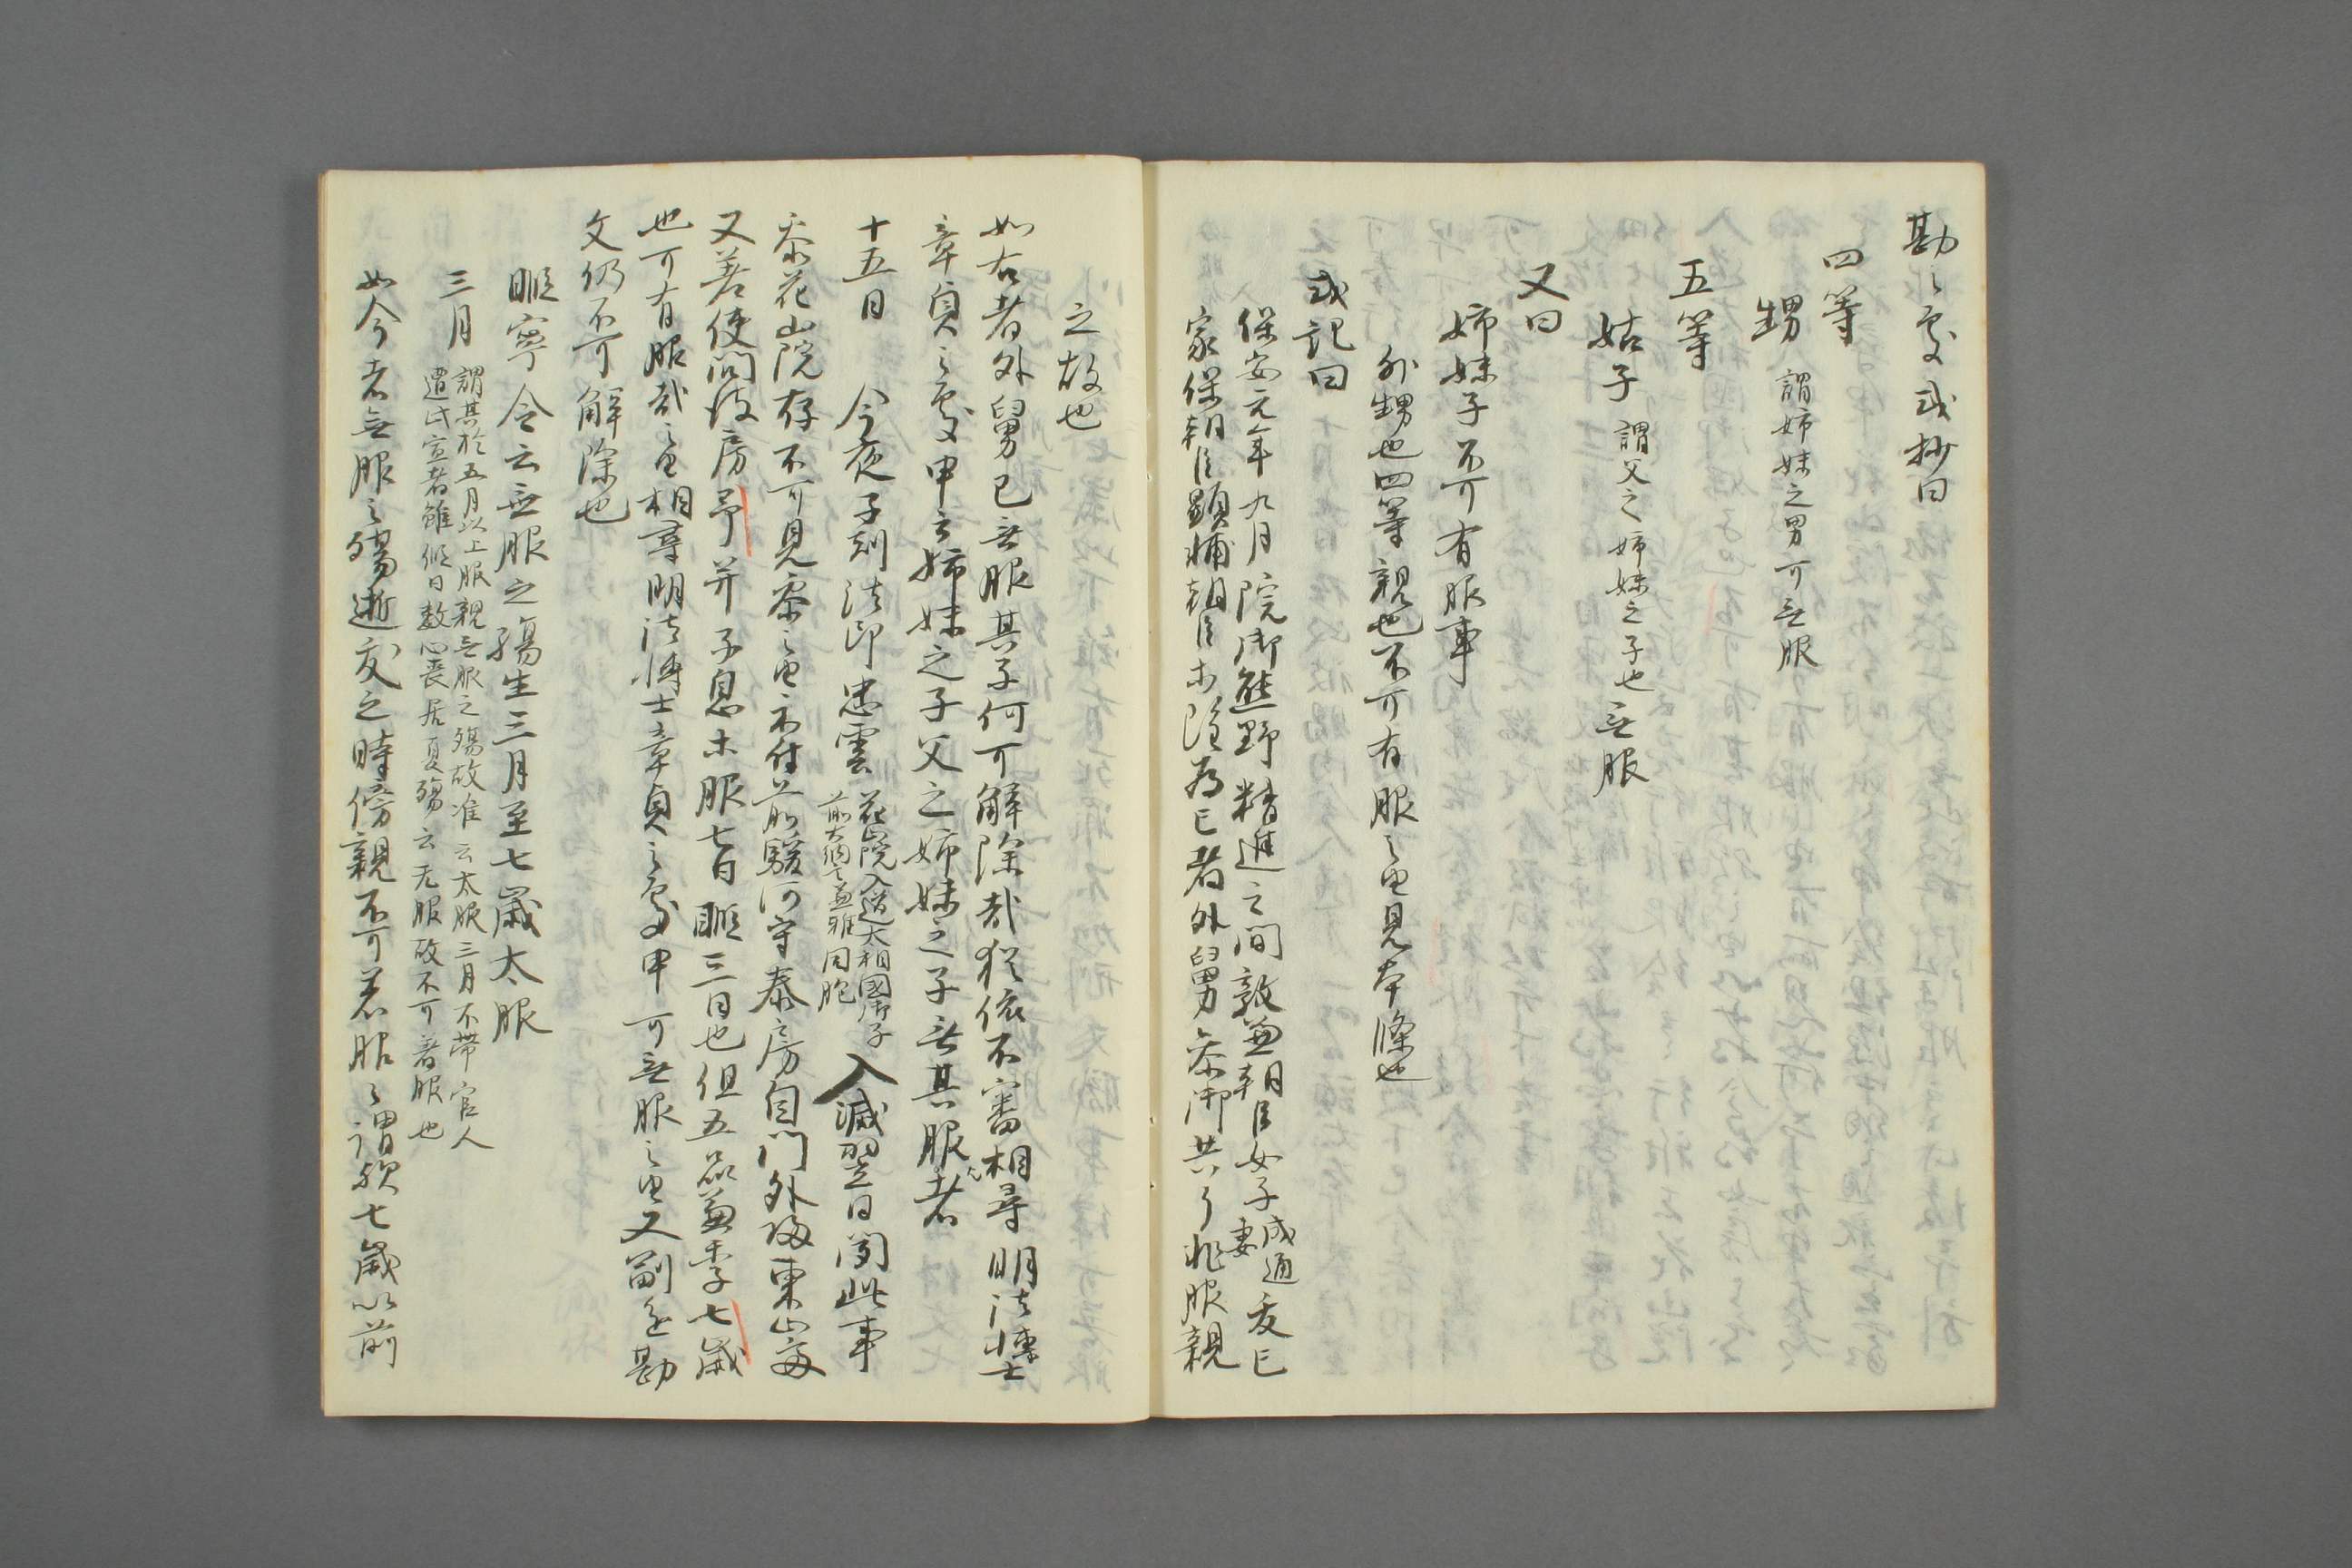 勘之處或抄曰
四等
甥 謂姉妹之男可無服
五等
姑子 謂父之姉妹之子也無服
又曰
姉妹子不可有服事
外甥也四等親也不可有服之由見本條也
或記曰
保安元年九月院御熊野精進之間敦兼朝臣女子成通妻爰亡
家保朝臣顕輔朝臣等雖為亡者外舅參御共了非服親
之故也
如右者外舅已無服其子何可解除哉猶依不審相尋明法博士
章貞之處申云姉妹之子父之姉妹之子無其服者
十五日 今夜子刻法印忠雲花山院入道太相國息子
前大納言兼雅同胞入滅翌日聞此事
參花山院存不可見參之由示付前駿河守泰房自門外歸東山
又差使問彼房予并子息等服七日暇三日也但五品兼季七歳
也可有服哉之由相尋明法博士章貞之處申可無服之由又副進勘
文仍不可解除也
暇寧令云無服之殤生三月至七歳太服
三月 謂其於五月以上服親無服之殤故准云太服三月不帶官人
遭此定者雖假日数心喪居夏殤云无服故不可著服也
如今者無服之殤逝去之時傍親不可着服之謂歟七歳以前